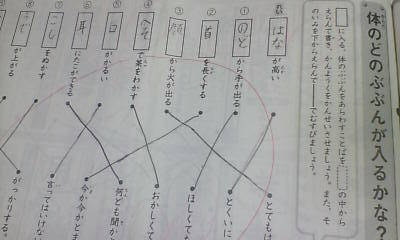 体のどのぶぶんが入るかな?
□に入る、体のぶぶんをあらわすことばを□の中から
えらんで書き、かんようくをかんせいさせましょう。また、そ
のいみを下からえらんで――でむすびましょう。
はな が高い
① のど から手が出る
② 首 を長くする
③ 顔 から火が出る
④ へそ で茶をわかす
⑤ 口 がかるい
⑥ 耳 にたこができる
⑦ こし をぬかす
⑧ が上がる
とても
とくいに
ほしくても
おかしくて
何ども聞か
今か今かとま
言ってはいけない
がっかりする。